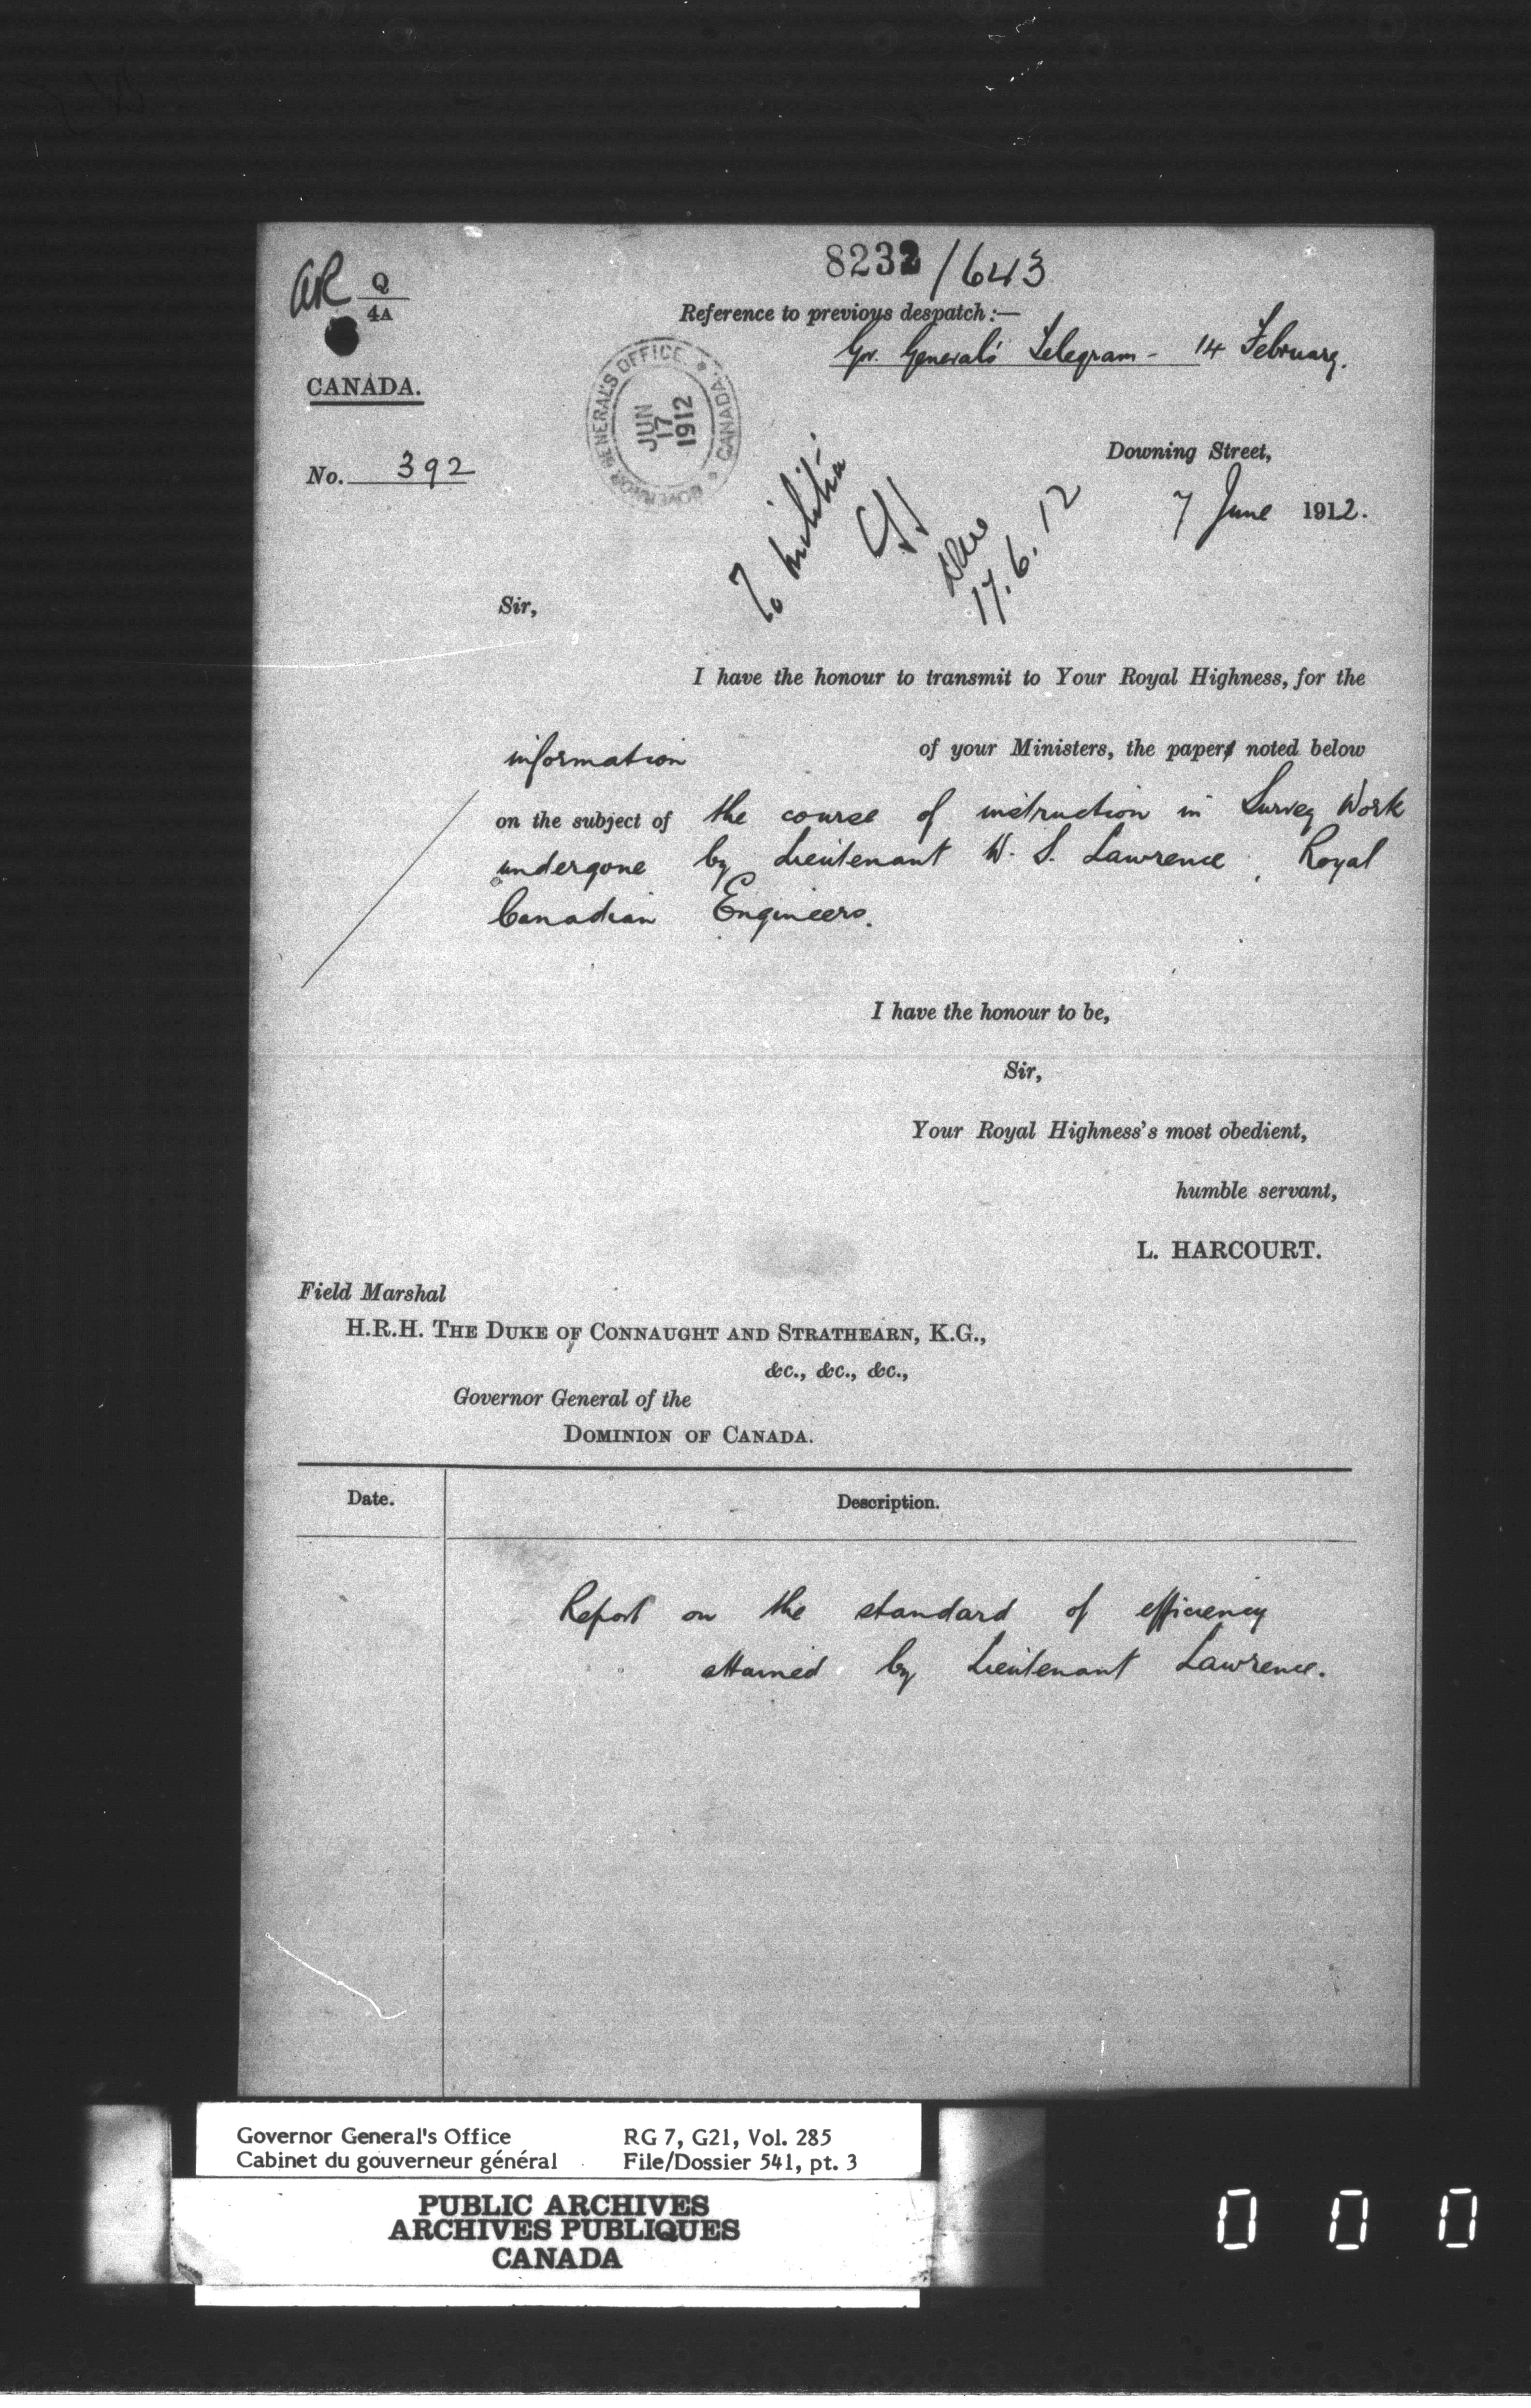 8232/643
QR Q
4A
Reference to previous despatch :—
Gov. General's Telegram - 14 February.
CANADA.
GOVERNOR GENERAL'S OFFICE * CANADA *
JUN
17
1912
No. 392
Downing Street,
7 June 1912.
To Militia
17.6.12
Sir,
I have the honour to transmit to Your Royal Highness, for the
information of your Ministers, the paper noted below
on the subject of the course of instruction in Survey Work
undergone by Lieutenant W. S. Lawrence, Royal
Canadian Engineers.
I have the honour to be,
Sir,
Your Royal Highness's most obedient,
humble servant,
L. HARCOURT.
Field Marshal
H.R.H. THE DUKE OF CONNAUGHT AND STRATHEARN, K.G.,
&c., &c., &c.,
Governor General of the
DOMINION OF CANADA.
Date. Description.
Report on the standard of efficiency
attained by Lieutenant Lawrence.
Governor General's Office RG 7, G21, Vol. 285
Cabinet du gouverneur général File/Dossier 541, pt. 3
PUBLIC ARCHIVES
ARCHIVES PUBLIQUES
CANADA
0 0 0